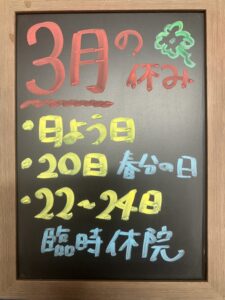 3月の休み
・日よう日
・20日 春分の日
・22~24日
臨時休院